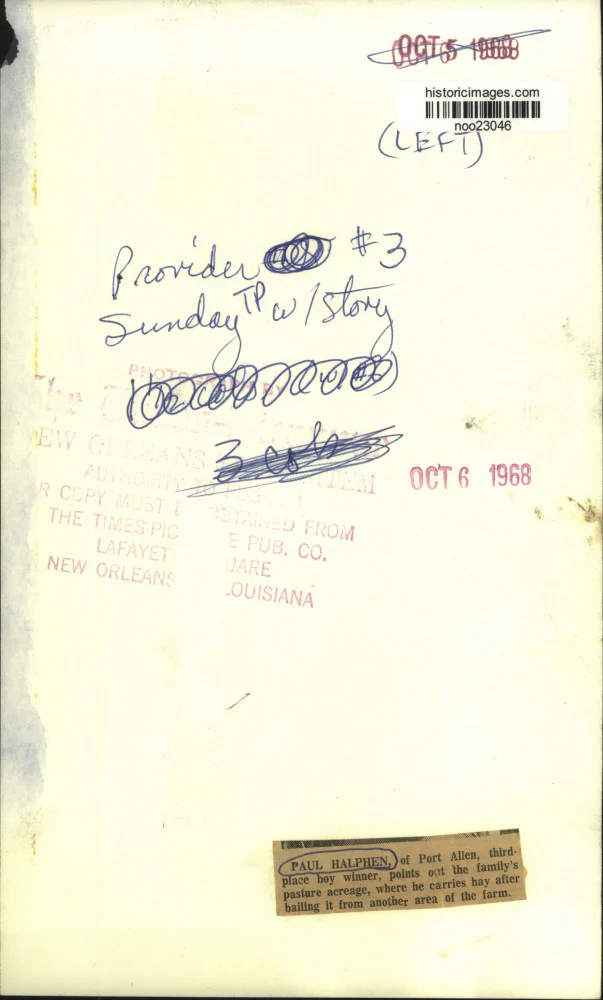 historicimages.com
noo23046
(LEFT)
Provider #3
Sunday TP w/story
3 cols
OCT 6 1968
EW ORLEANS
AUTHORITY
R COPY MUST
TAINED FROM
THE TIMES-PIC
E PUB. CO.
LAFAYET
UARE
NEW ORLEANS
LOUISIANA
PAUL HALPHEN, of Port Allen, third-
place boy winner, points out the family's
pasture acreage, where he carries hay after
bailing it from another area of the farm.